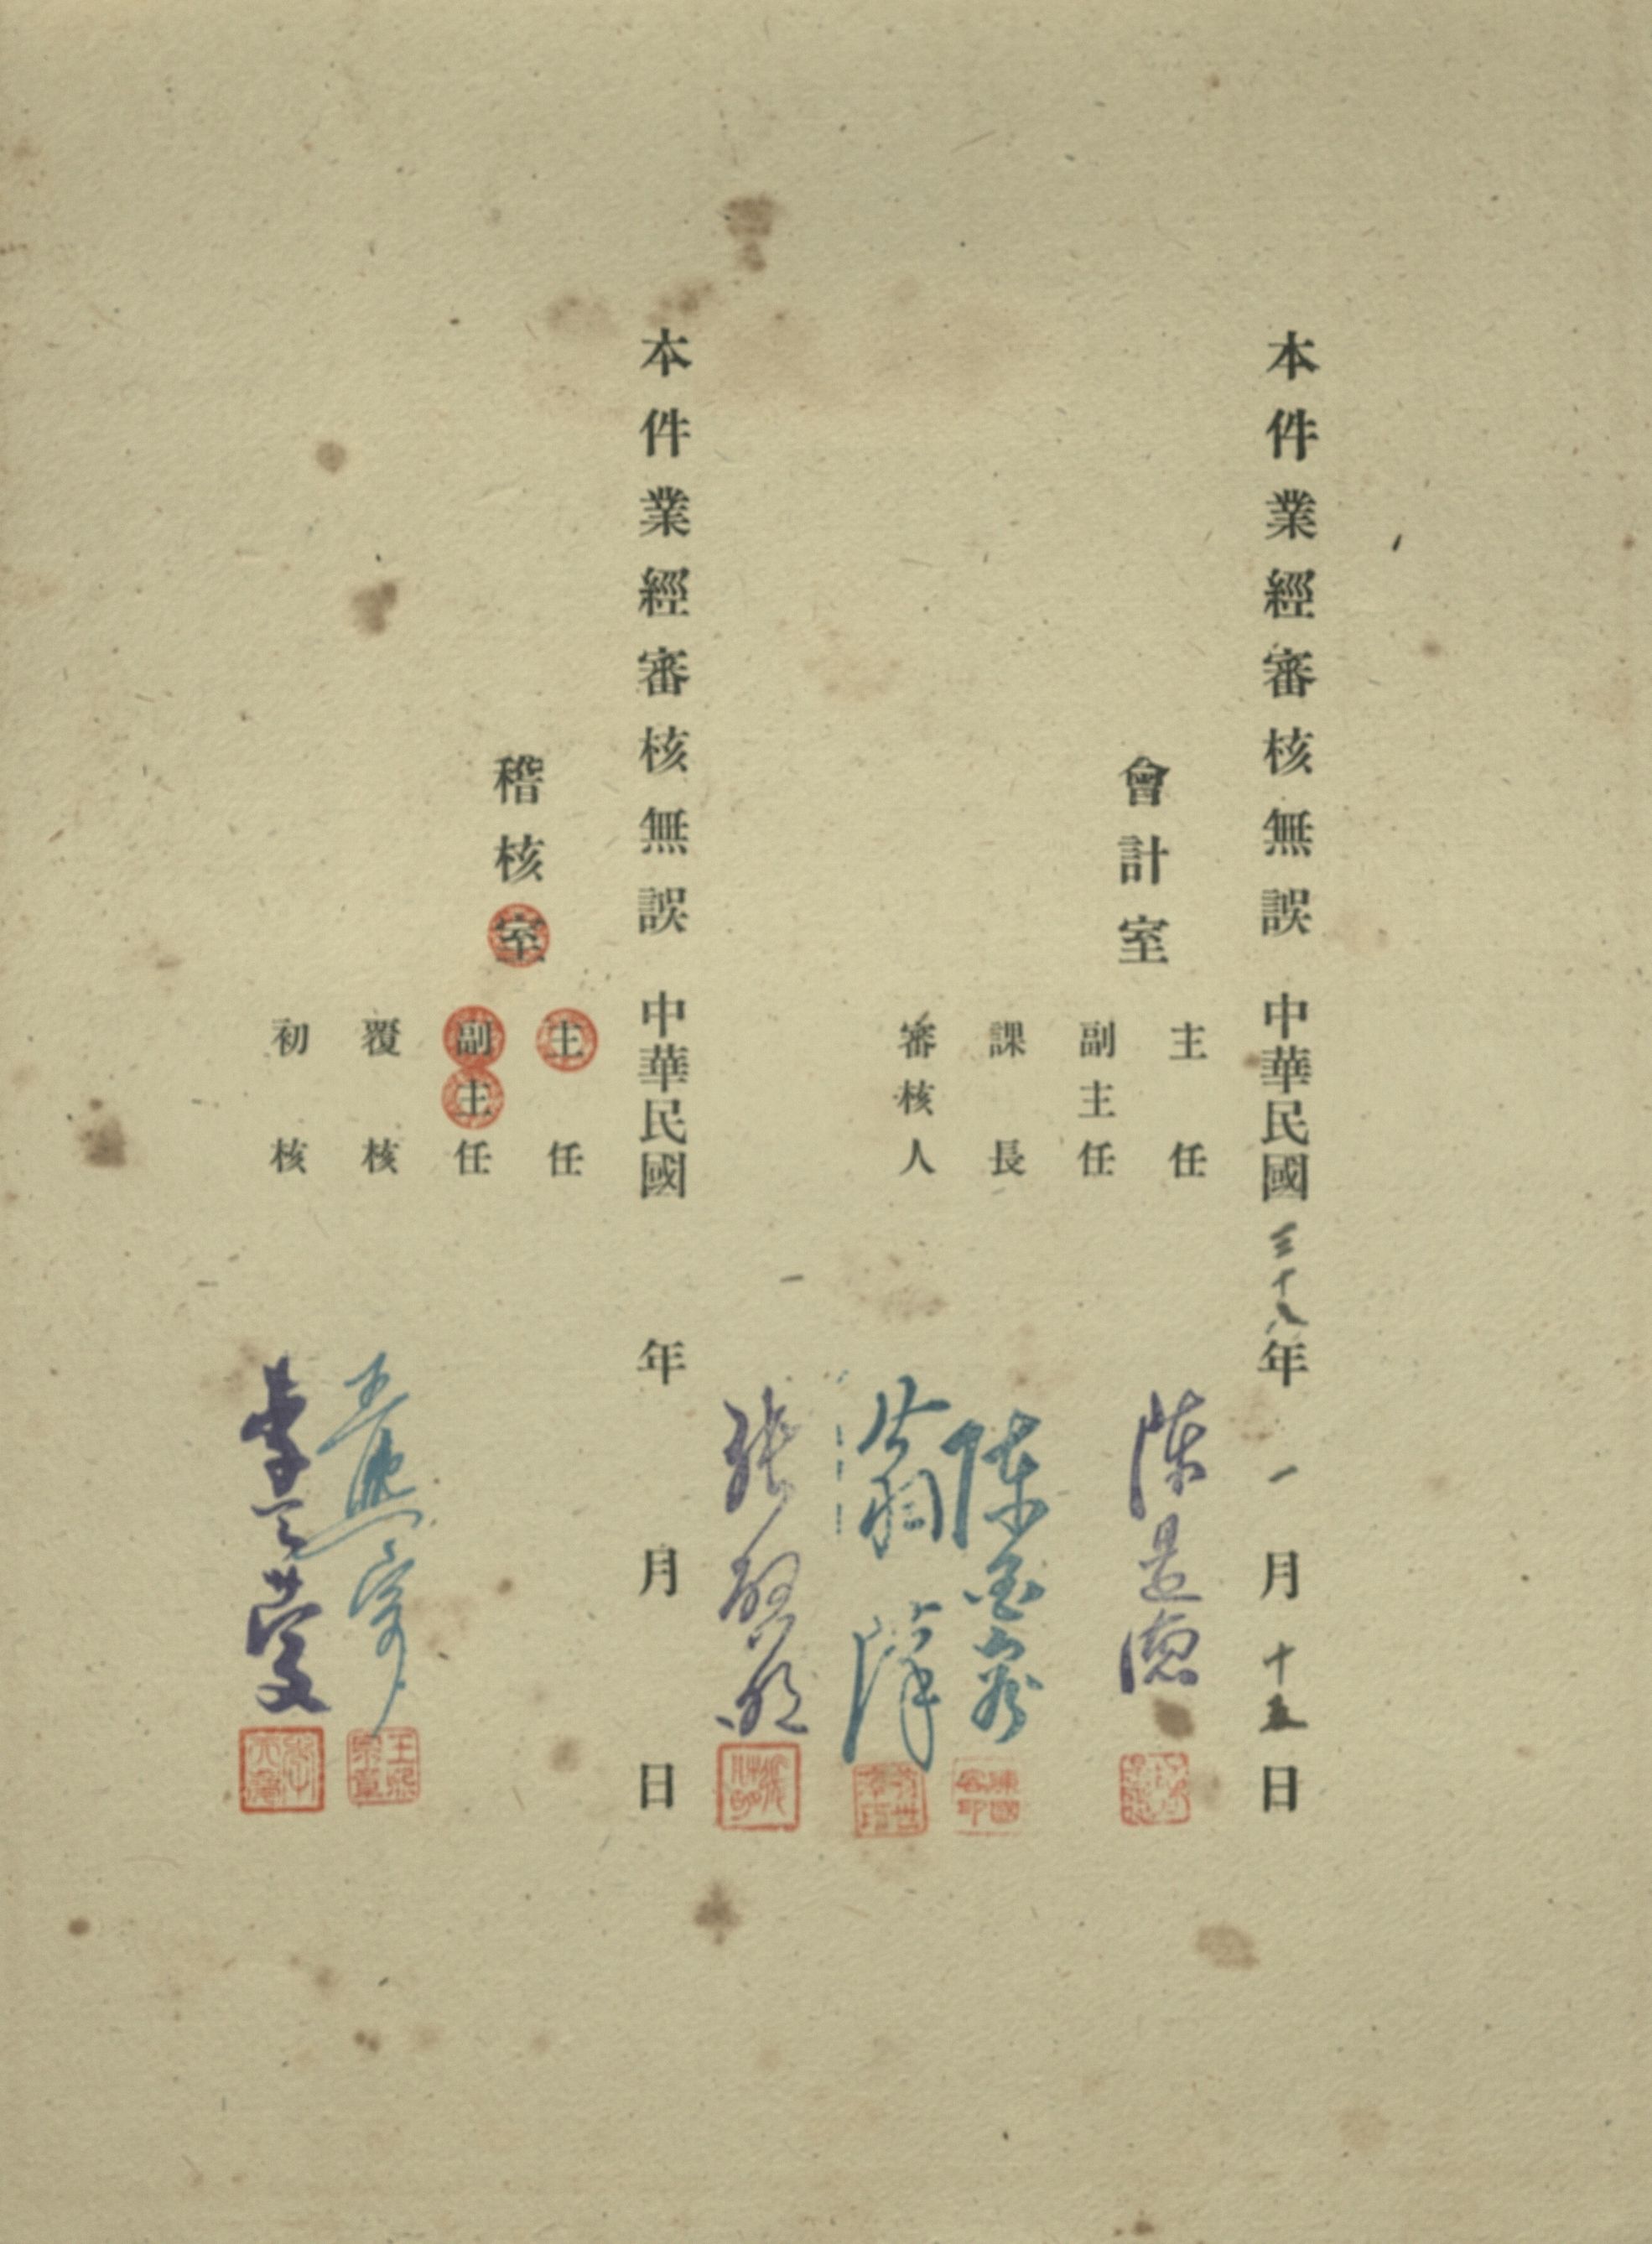 本件業經審核無誤 中華民國三十八年一月十五日
會計室
主任 陳
副主任
課長 陳
審核人 翁
張
本件業經審核無誤 中華民國 年 月 日
稽核室
主任
副主任
覆核 王熙宗
初核 李